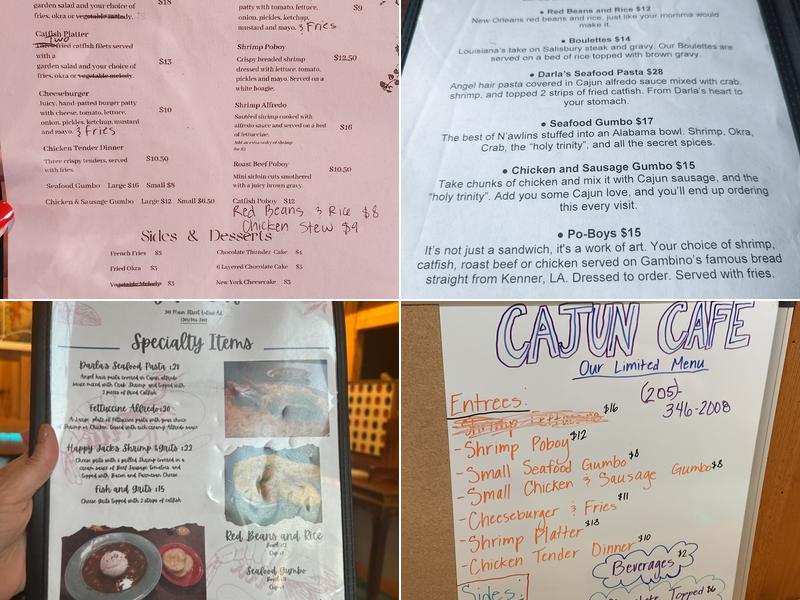 $18
garden salad and your choice of
fries, okra or vegetable melody.
Catfish Platter
Two
fried catfish filets served
with a
garden salad and your choice of
fries, okra or vegetable melody.
$13
Cheeseburger
Juicy, hand-patted burger patty
with cheese, tomato, lettuce,
onion, pickles, ketchup, mustard
and mayo. & Fries
$10
Chicken Tender Dinner
Three crispy tenders, served
with fries.
$10.50
Seafood Gumbo Large $16 Small $8
Chicken & Sausage Gumbo Large $12 Small $6.50
patty with tomato, lettuce,
onion, pickles, ketchup,
mustard and mayo. & Fries
$9
Shrimp Poboy
Crispy breaded shrimp
dressed with lettuce, tomato,
pickles and mayo. Served on a
white hoagie.
$12.50
Shrimp Alfredo
Sautéed shrimp cooked with
alfredo sauce and served on a bed
of fettuccine.
$16
Roast Beef Poboy
Mini sirloin cuts smothered
with a juicy brown gravy.
$10.50
Catfish Poboy $12
Red Beans & Rice $8
Chicken Stew $9
Sides & Desserts
French Fries $3
Fried Okra $3
Vegetable Melody $3
Chocolate Thunder Cake $4
6 Layered Chocolate Cake $3
New York Cheesecake $3
• Red Beans and Rice $12
New Orleans red beans and rice, just like your momma would
make it.
• Boulettes $14
Louisiana's take on Salisbury steak and gravy. Our Boulettes are
served on a bed of rice topped with brown gravy.
• Darla's Seafood Pasta $28
Angel hair pasta covered in Cajun alfredo sauce mixed with crab,
shrimp, and topped 2 strips of fried catfish. From Darla's heart to
your stomach.
• Seafood Gumbo $17
The best of N'awlins stuffed into an Alabama bowl. Shrimp, Okra,
Crab, the "holy trinity", and all the secret spices.
• Chicken and Sausage Gumbo $15
Take chunks of chicken and mix it with Cajun sausage, and the
"holy trinity". Add you some Cajun love, and you'll end up ordering
this every visit.
• Po-Boys $15
It's not just a sandwich, it's a work of art. Your choice of shrimp,
catfish, roast beef or chicken served on Gambino's famous bread
straight from Kenner, LA. Dressed to order. Served with fries.
Specialty Items
Darla's Seafood Pasta :28
Angel hair pasta covered in Cajun alfredo
sauce mixed with Crab, Shrimp, and topped with
2 pieces of fried Catfish
Fettuccine Alfredo:20
A large plate of Fettuccine pasta with your choice
of Shrimp or Chicken, tossed with rich creamy Alfredo sauce
Happy Jack's Shrimp &Grits :22
Cheese grits with a grilled Shrimp covered in a
cream sauce of Beef Sausage, tomatoes, and
topped with Bacon and Parmesan Cheese
Fish and Grits :15
Cheese Grits topped with 2 strips of catfish
Red Beans and Rice
Seafood Gumbo
CAJUN CAFE
Our Limited Menu
(205)-
346-2008
Entrees:
Shrimp Fettuccine $16
-Shrimp Poboy $12
-Small Seafood Gumbo $8
-Small Chicken & Sausage Gumbo $8
-Cheeseburger & Fries $11
-Shrimp Platter $18
-Chicken Tender Dinner $10
Beverages $2
Sides:
Topped $6